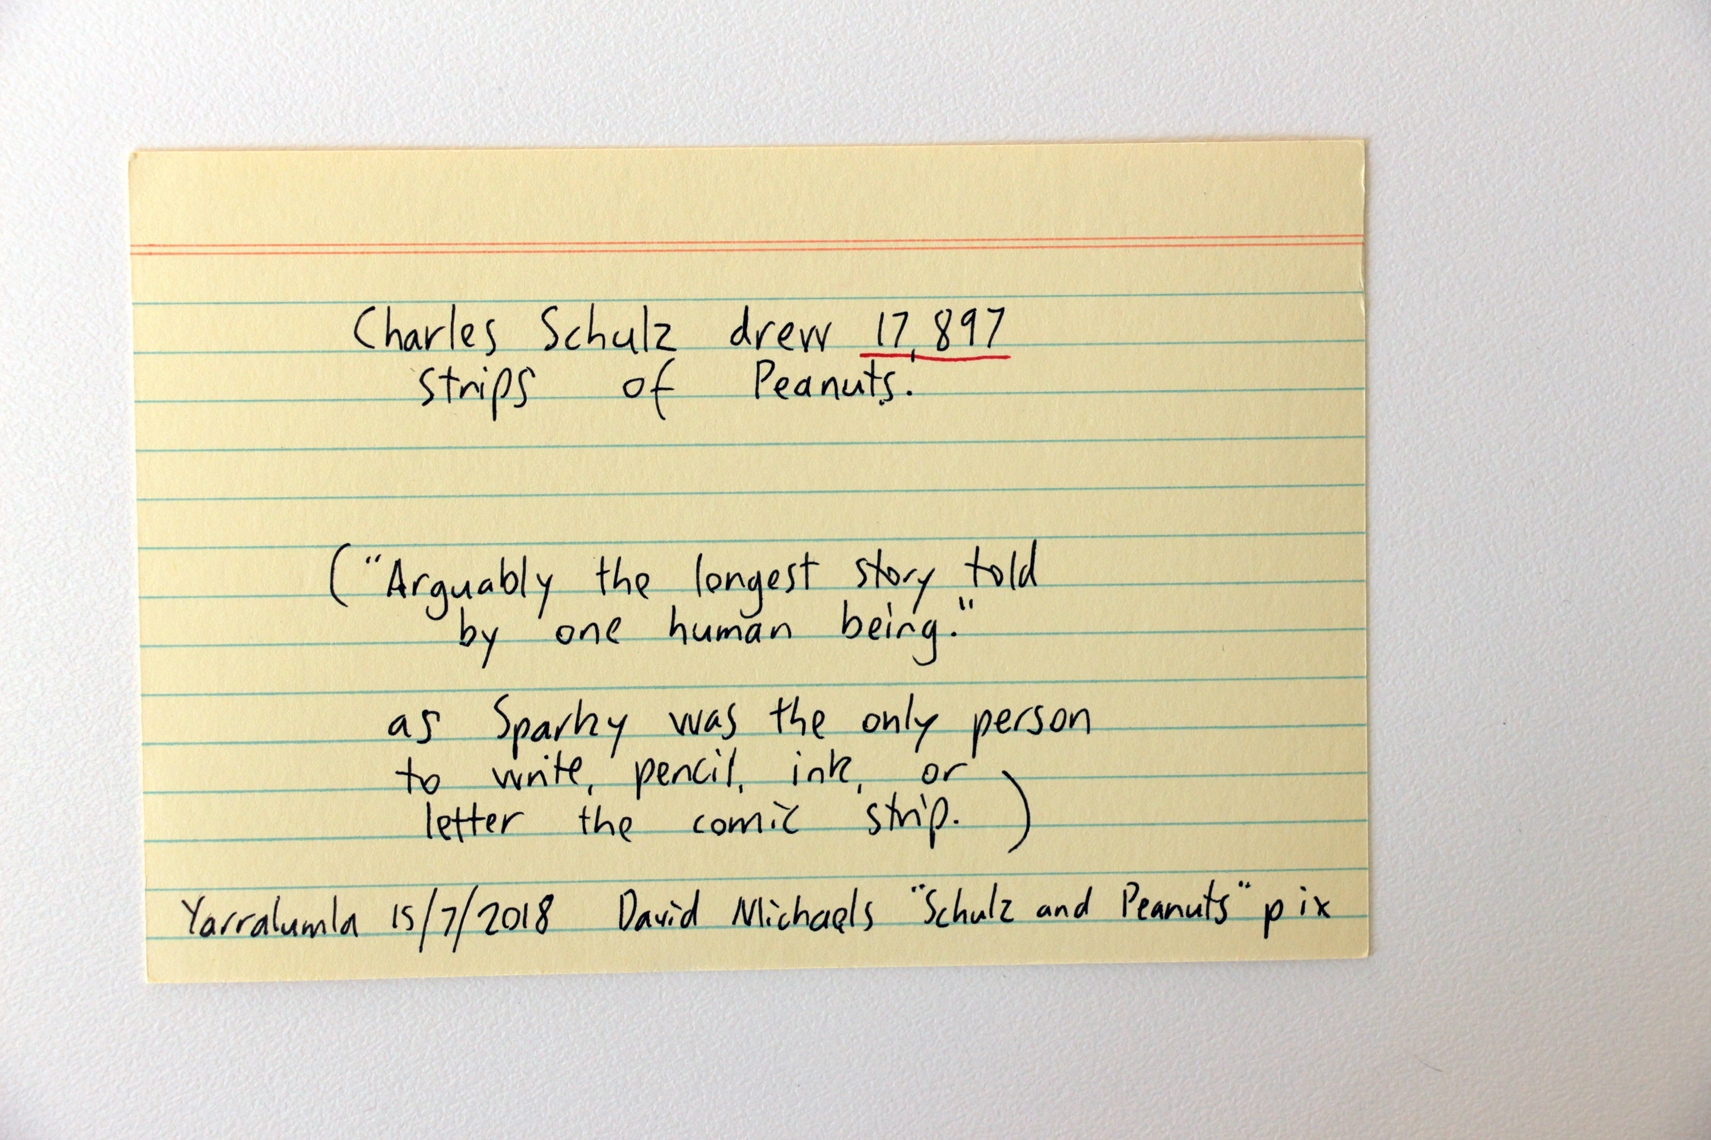 Charles Schulz drew 17,897
strips of Peanuts.
("Arguably the longest story told
by one human being."
as Sparky was the only person
to write, pencil, ink, or
letter the comic strip.)
Yarralumla 15/7/2018 David Michaels "Schulz and Peanuts" p ix